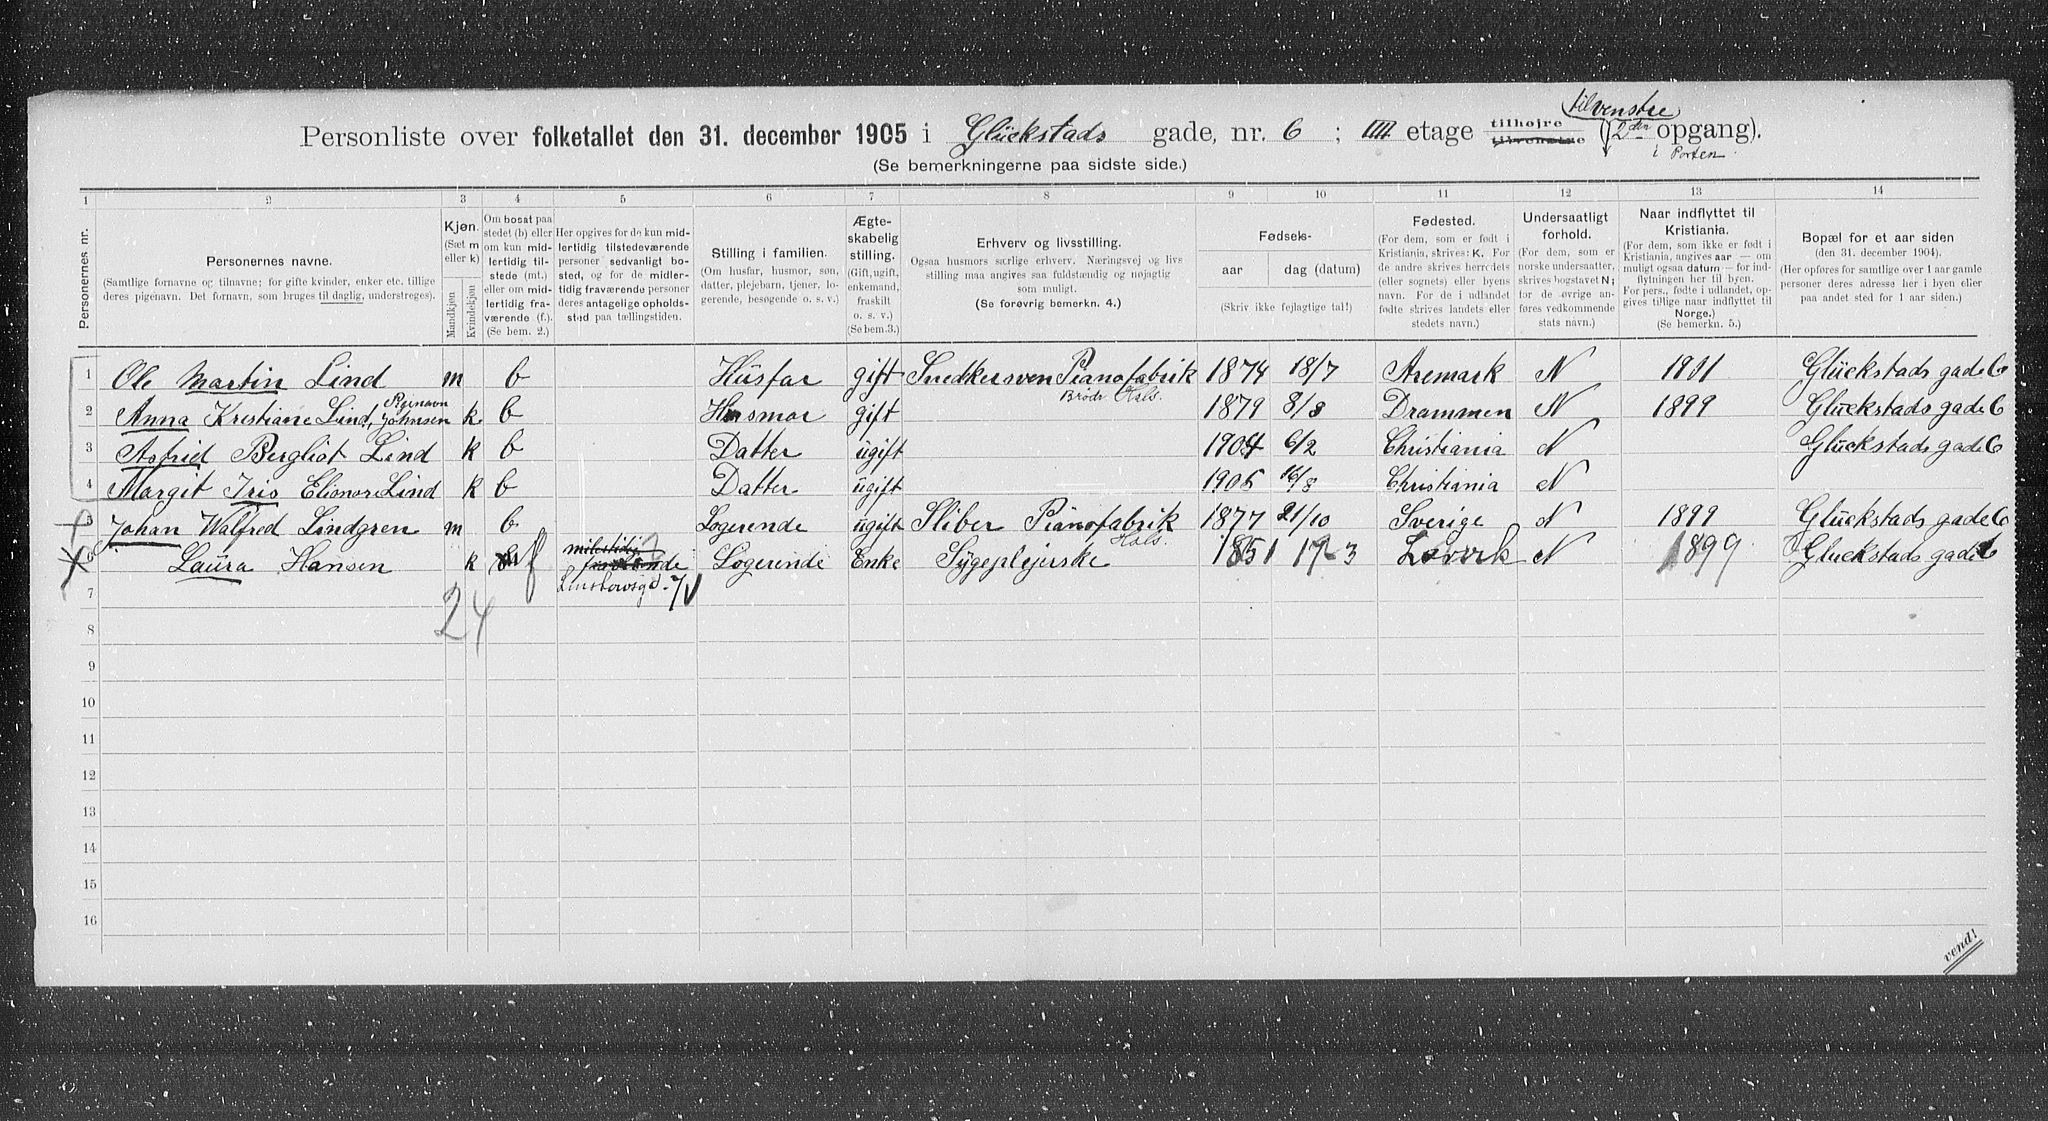 Personliste over folketallet den 31. december 1905 i Glückstads gade, nr. 6 ; IIII etage tilhøjre tilvenstre (2den opgang).
tilvenstre
i Porten
(Se bemerkningerne paa sidste side.)
1 2 3 4 5 6 7 8 9 10 11 12 13 14
Personernes nr.
Personernes navne.
(Samtlige fornavne og tilnavne; for gifte kvinder, enker etc. tillige deres pigenavn. Det fornavn, som bruges til daglig, understreges).
Kjøn.
(Sæt m eller k)
Mandkjøn
Kvindekjøn
Om bosat paa stedet (b) eller om kun midlertidig tilstede (mt.) eller om midlertidig fraværende (f.). (Se bem. 2.)
Her opgives for de kun midlertidig tilstedeværende personer sedvanligt bosted, og for de midlertidig fraværende personer deres antagelige opholdssted paa tællingstiden.
Stilling i familien.
(Om husfar, husmor, søn, datter, plejebarn, tjener, logerende, besøgende o. s. v.)
Ægteskabelig stilling.
(Gift, ugift, enkemand, fraskilt o. s. v.) (Se bem. 3.)
Erhverv og livsstilling.
Ogsaa husmors særlige erhverv. Næringsvej og livsstilling maa angives saa fuldstændig og nøjagtig som muligt.
(Se forøvrig bemerkn. 4.)
Fødsels-
aar dag (datum)
(Skriv ikke fejlagtige tal!)
Fødested.
(For dem, som er født i Kristiania, skrives: K. For de andre skrives herredets (eller sognets) eller byens navn. For de i udlandet fødte skrives landets eller stedets navn.)
Undersaatligt forhold.
(For dem, som er norske undersaatter, skrives bogstavet N; for de øvrige anføres vedkommende stats navn.)
Naar indflyttet til Kristiania.
(For dem, som ikke er født i Kristiania, angives aar — om muligt ogsaa datum — for indflytningen her til byen. For pers., fødte i udlandet, opgives tillige naar indflyttet til Norge.)
(Se bemerkn. 5.)
Bopæl for et aar siden
(den 31. december 1904).
(Her opføres for samtlige over 1 aar gamle personer deres adresse her i byen eller paa andet sted for 1 aar siden.)
1 Ole Martin Lind m b Husfar gift Snedkersven Pianofabrik Brødr Hals. 1874 18/7 Aremark N 1901 Glückstads gade 6
2 Anna Kristiane Lind, Pginavn Johnsen k. b Husmor gift 1879 8/8 Drammen N 1899 Gluckstads gade 6
3 Astrid Bergliot Lind k b Datter ugift 1904 6/2 Christiania N Gluckstads gade 6
4 Margit Iris Elionore Lind k b Datter ugift 1905 16/8 Christiania N
5 Johan Walfred Lindgren m b Logerende ugift Sliber Pianofabrik Hals. 1877 21/10 Sverige N 1899 Glückstads gade 6
6 Laura Hansen k f Logerende Enke Sygeplejerske 1851 17-3 N 1899 Gluckstads gade 6
7
24
8
9
10
11
12
13
14
15
16
vend!